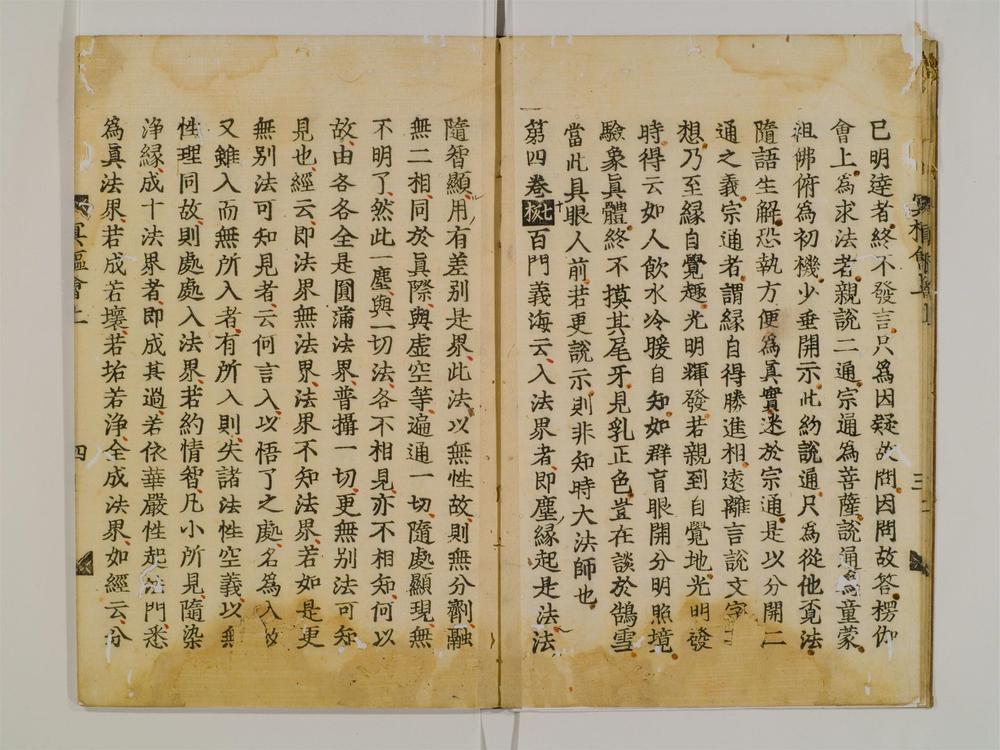 已明達者終不發言只爲因疑故問因問故答楞伽
會上爲求法者親說二通宗通爲菩薩說通爲童蒙
祖佛俯爲初機少垂開示此約說通只爲從他覓法
隨語生解恐執方便爲眞實迷於宗通是以分開二
通之義宗通者謂緣自得勝進相遠離言說文字
想乃至緣自覺趣光明輝發若親到自覺地光明發
時得云如人飮水冷暖自知如群盲眼開分明照境
驗象眞體終不摸其尾牙見乳正色豈在談於鵠雪
當此具眼人前若更說示則非知時大法師也
第四卷 百門義海云入法界者即塵緣起是法法
隨智顯用有差别是界此法以無性故則無分劑融
無二相同於眞際與虛空等遍通一切隨處顯現無
不明了然此一塵與一切法各不相見亦不相知何以
故由各各全是圓滿法界普攝一切更無别法可知
見也經云即法界無法界法界不知法界若如是更
無别法可知見者云何言入以悟了之處名爲入故
又雖入而無所入者有所入則失諸法性空義以無
性理同故則處處入法界若約情智凡小所見隨染
淨緣成十法界者即成其過若依華嚴性起法門悉
爲眞法界若成若壞若垢若淨全成法界如經云分
三
四